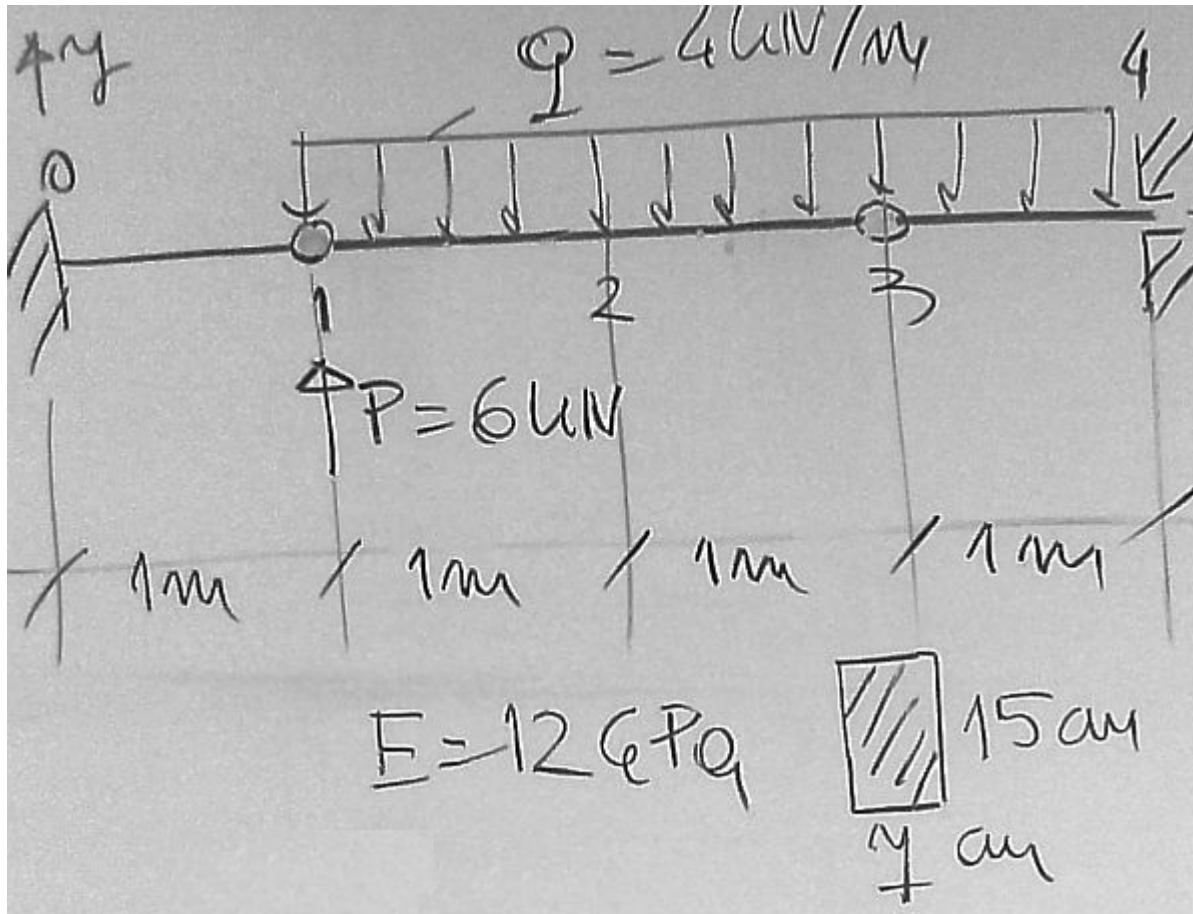 y
q = 4 kN/m
4
0
1
2
3
P = 6 kN
1m 1m 1m 1m
E = 12 GPa
15 cm
7 cm